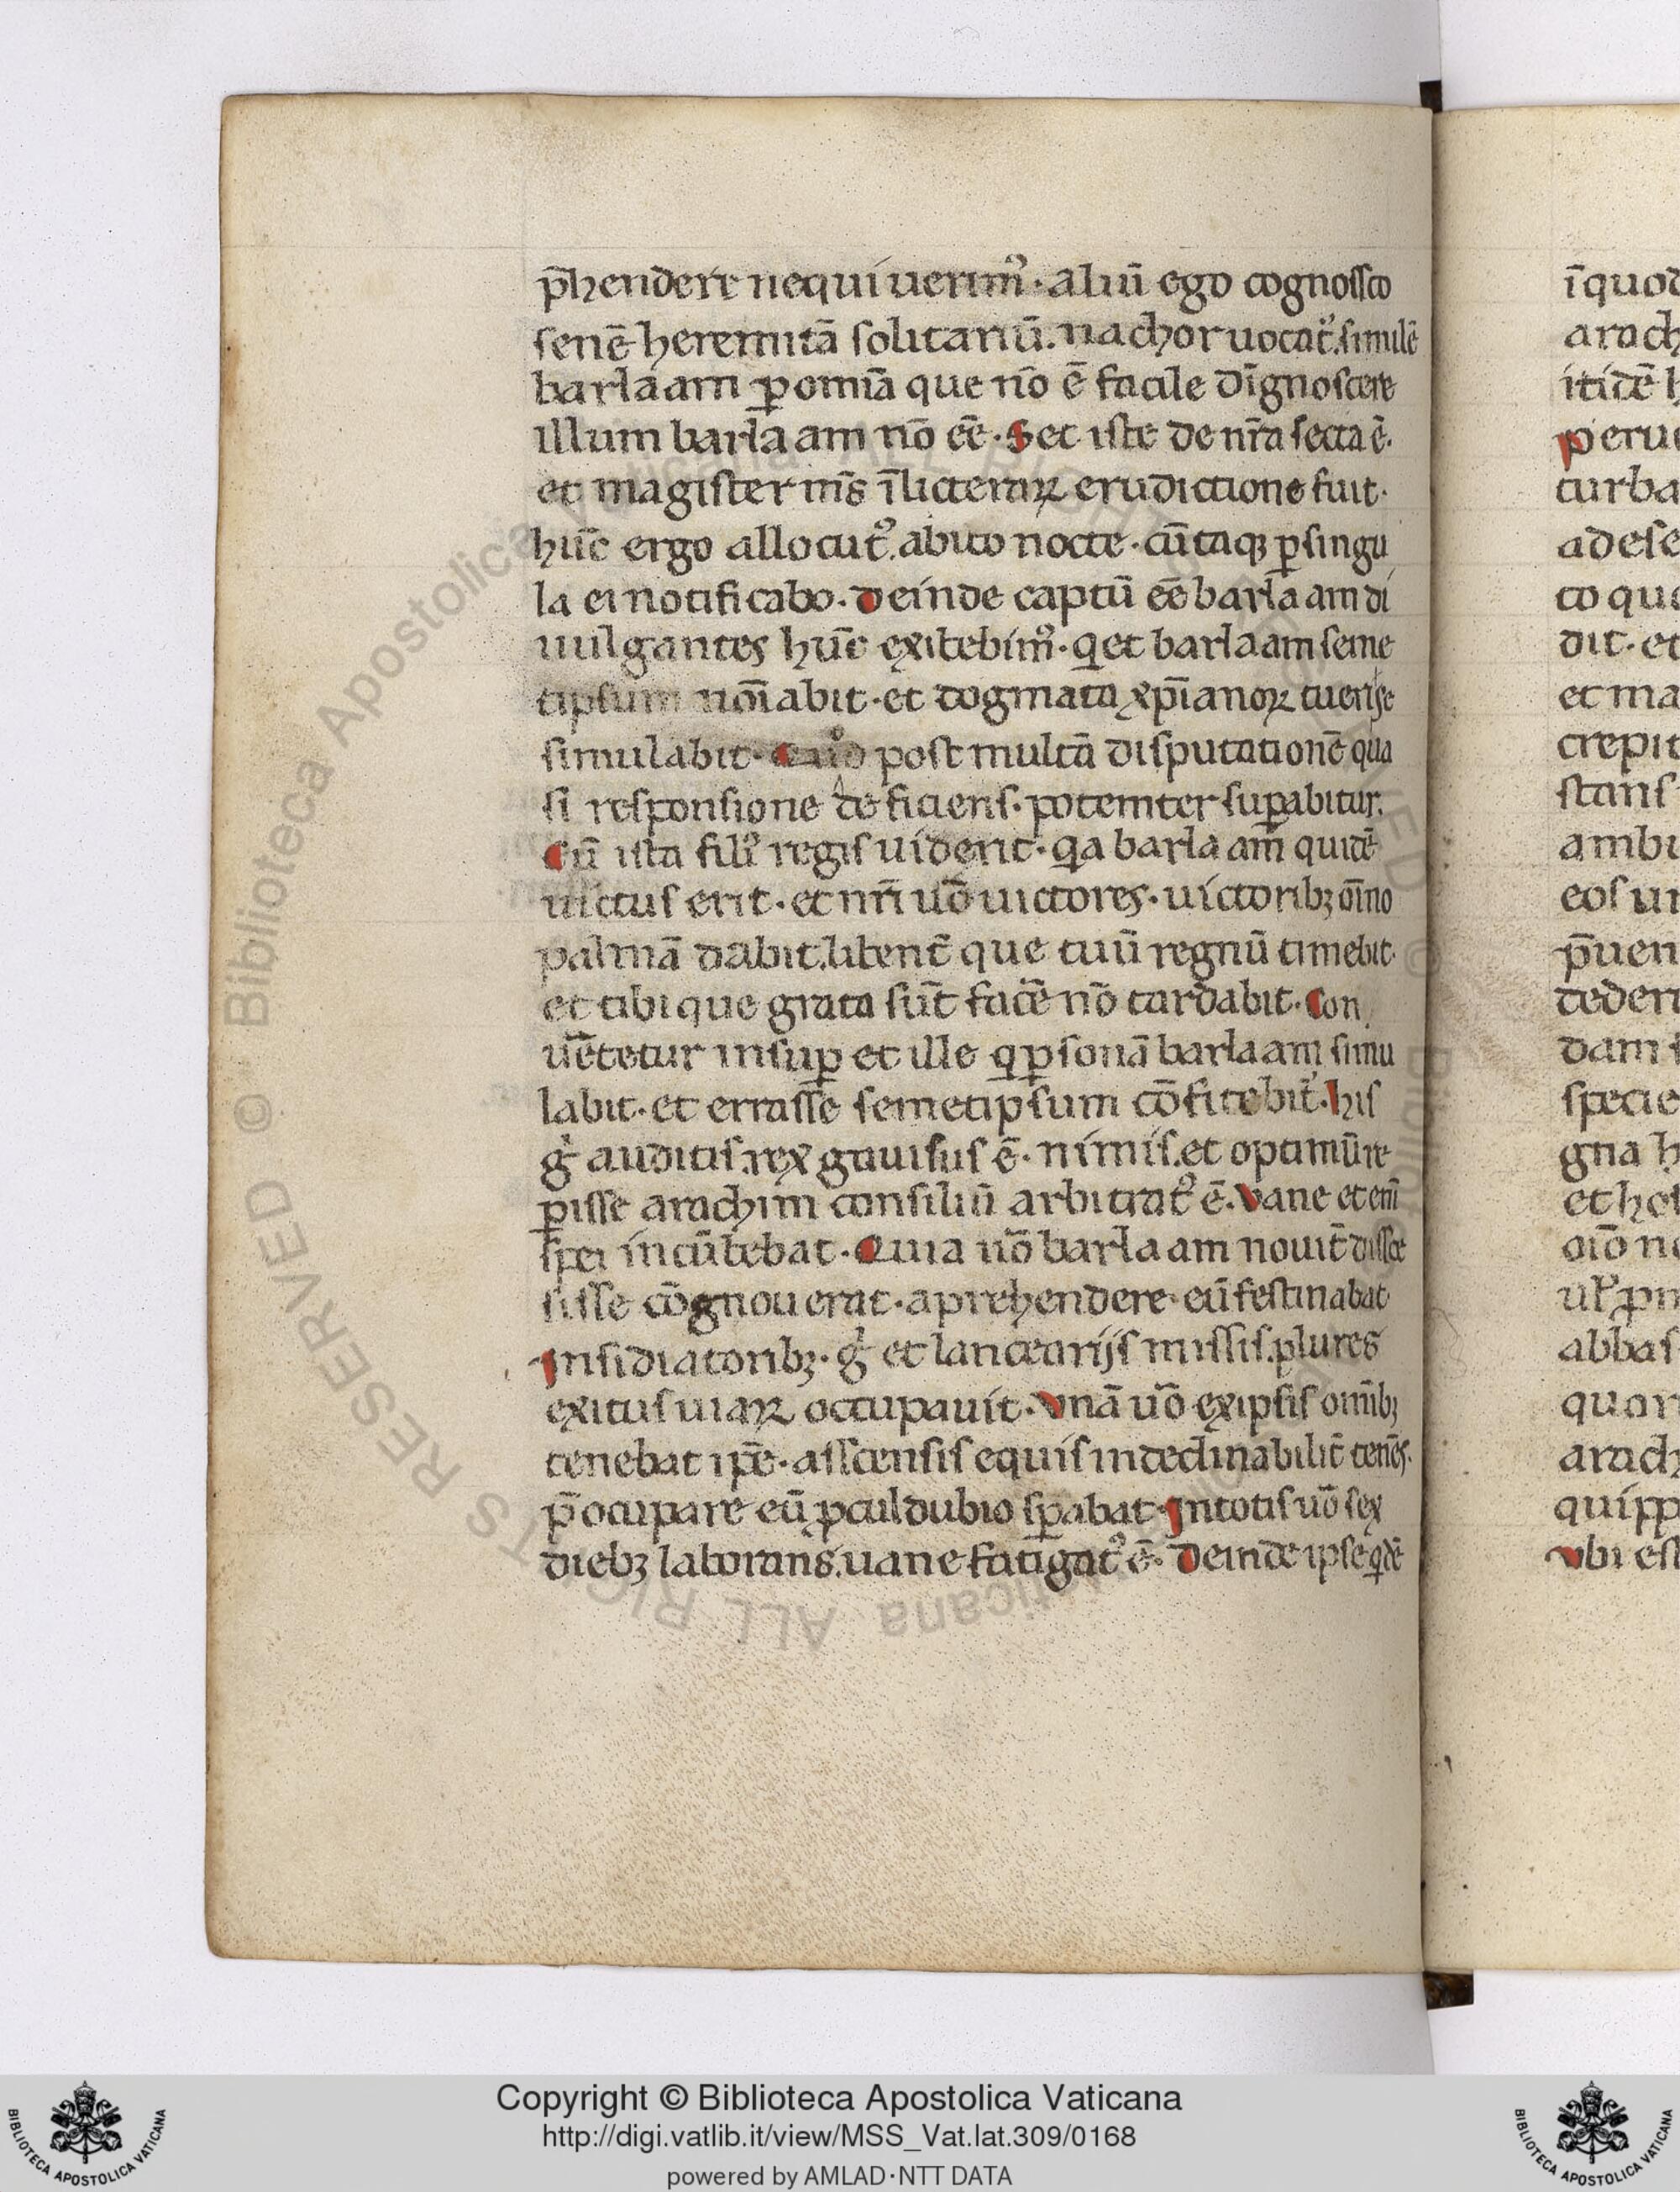 p̄hendere nequiuerim᷒. aliū ego cognoſſco
ſenē heremitā ſolitariū. nachor uocat᷑. ſimilē
barlaam ꝑ omīa que nō ē facile dīgnoſcere
illum barlaam nō ēē. Set iſte de nr̄a ſecta ē.
et magiſter m̄s ī licteraꝝ erudictione fuit.
hūc ergo allocut᷒. abito nocte. cūtaqꝫ ꝑ ſingu
la ei notificabo. Deinde captū ēē barlaam di
uulgantes hūc exitebim᷒. q̇ et barlaam ſeme
tipſum noīabit. et dogmata xp̄ianoꝝ tueri ſe
ſimulabit. post multā diſputationē qua
ſi reſponſione deficienſ. potemter ſuꝑabitur.
Cū iſta fili᷒ regiſ uiderit. qa barlaam quidē
uictuſ erit. et nr̄i uō uictores. uictoribꝫ oīno
palmā dabit. libent̄ que tuū regnū timebit.
et tibi que grata ſūt facē nō tardabit. Con
uētetur inſuꝑ et ille q̇ ꝑſonā barlaam ſimu
labit. et erraſſe ſemetipſum cōfitebit᷑. hiſ
g̊ auditiſ. rex gauiſuſ ē. nimiſ. et optimū re
ꝑiſſe arachim conſiliū arbitrat᷒ ē. Vane et enī
ſpei incūbebat. Quia uō barlaam nouit̄ diſſce
ſiſſe cōgnouerat. aprehendere eū feſtinabat
Inſidiatoribꝫ. g̊ et lanceariiſ miſſiſ. plures
exituſ uiaꝝ occupauit. Vnā uō ex ipſiſ omībꝫ
tenebat ip̄e. aſſcenſiſ equiſ indeclinabilit̄ tenēſ.
p̄ocupare eū ꝓculdubio ſꝑabat. In totiſ uō ſex
diebꝫ laborans. uane fatigat᷒ ē. Deinde ipſe qdē
īquod
arach
itidē h
Perue
turba
ad eſe
to quo
dit. et
et ma
crepit
ſtanſ
ambu
eoſ un
p̄uen
tedert
dam ſ
ſpecie
gna h
et hoſ
oīō no
ul᷑ ꝓm
abbaſ
quor
arach
quipp
Vbi eſſ
© Biblioteca Apostolica Vaticana ALL RIGHTS RESERVED
Copyright © Biblioteca Apostolica Vaticana
http://digi.vatlib.it/view/MSS_Vat.lat.309/0168
powered by AMLAD·NTT DATA
BIBLIOTECA APOSTOLICA VATICANA
BIBLIOTECA APOSTOLICA VATICANA